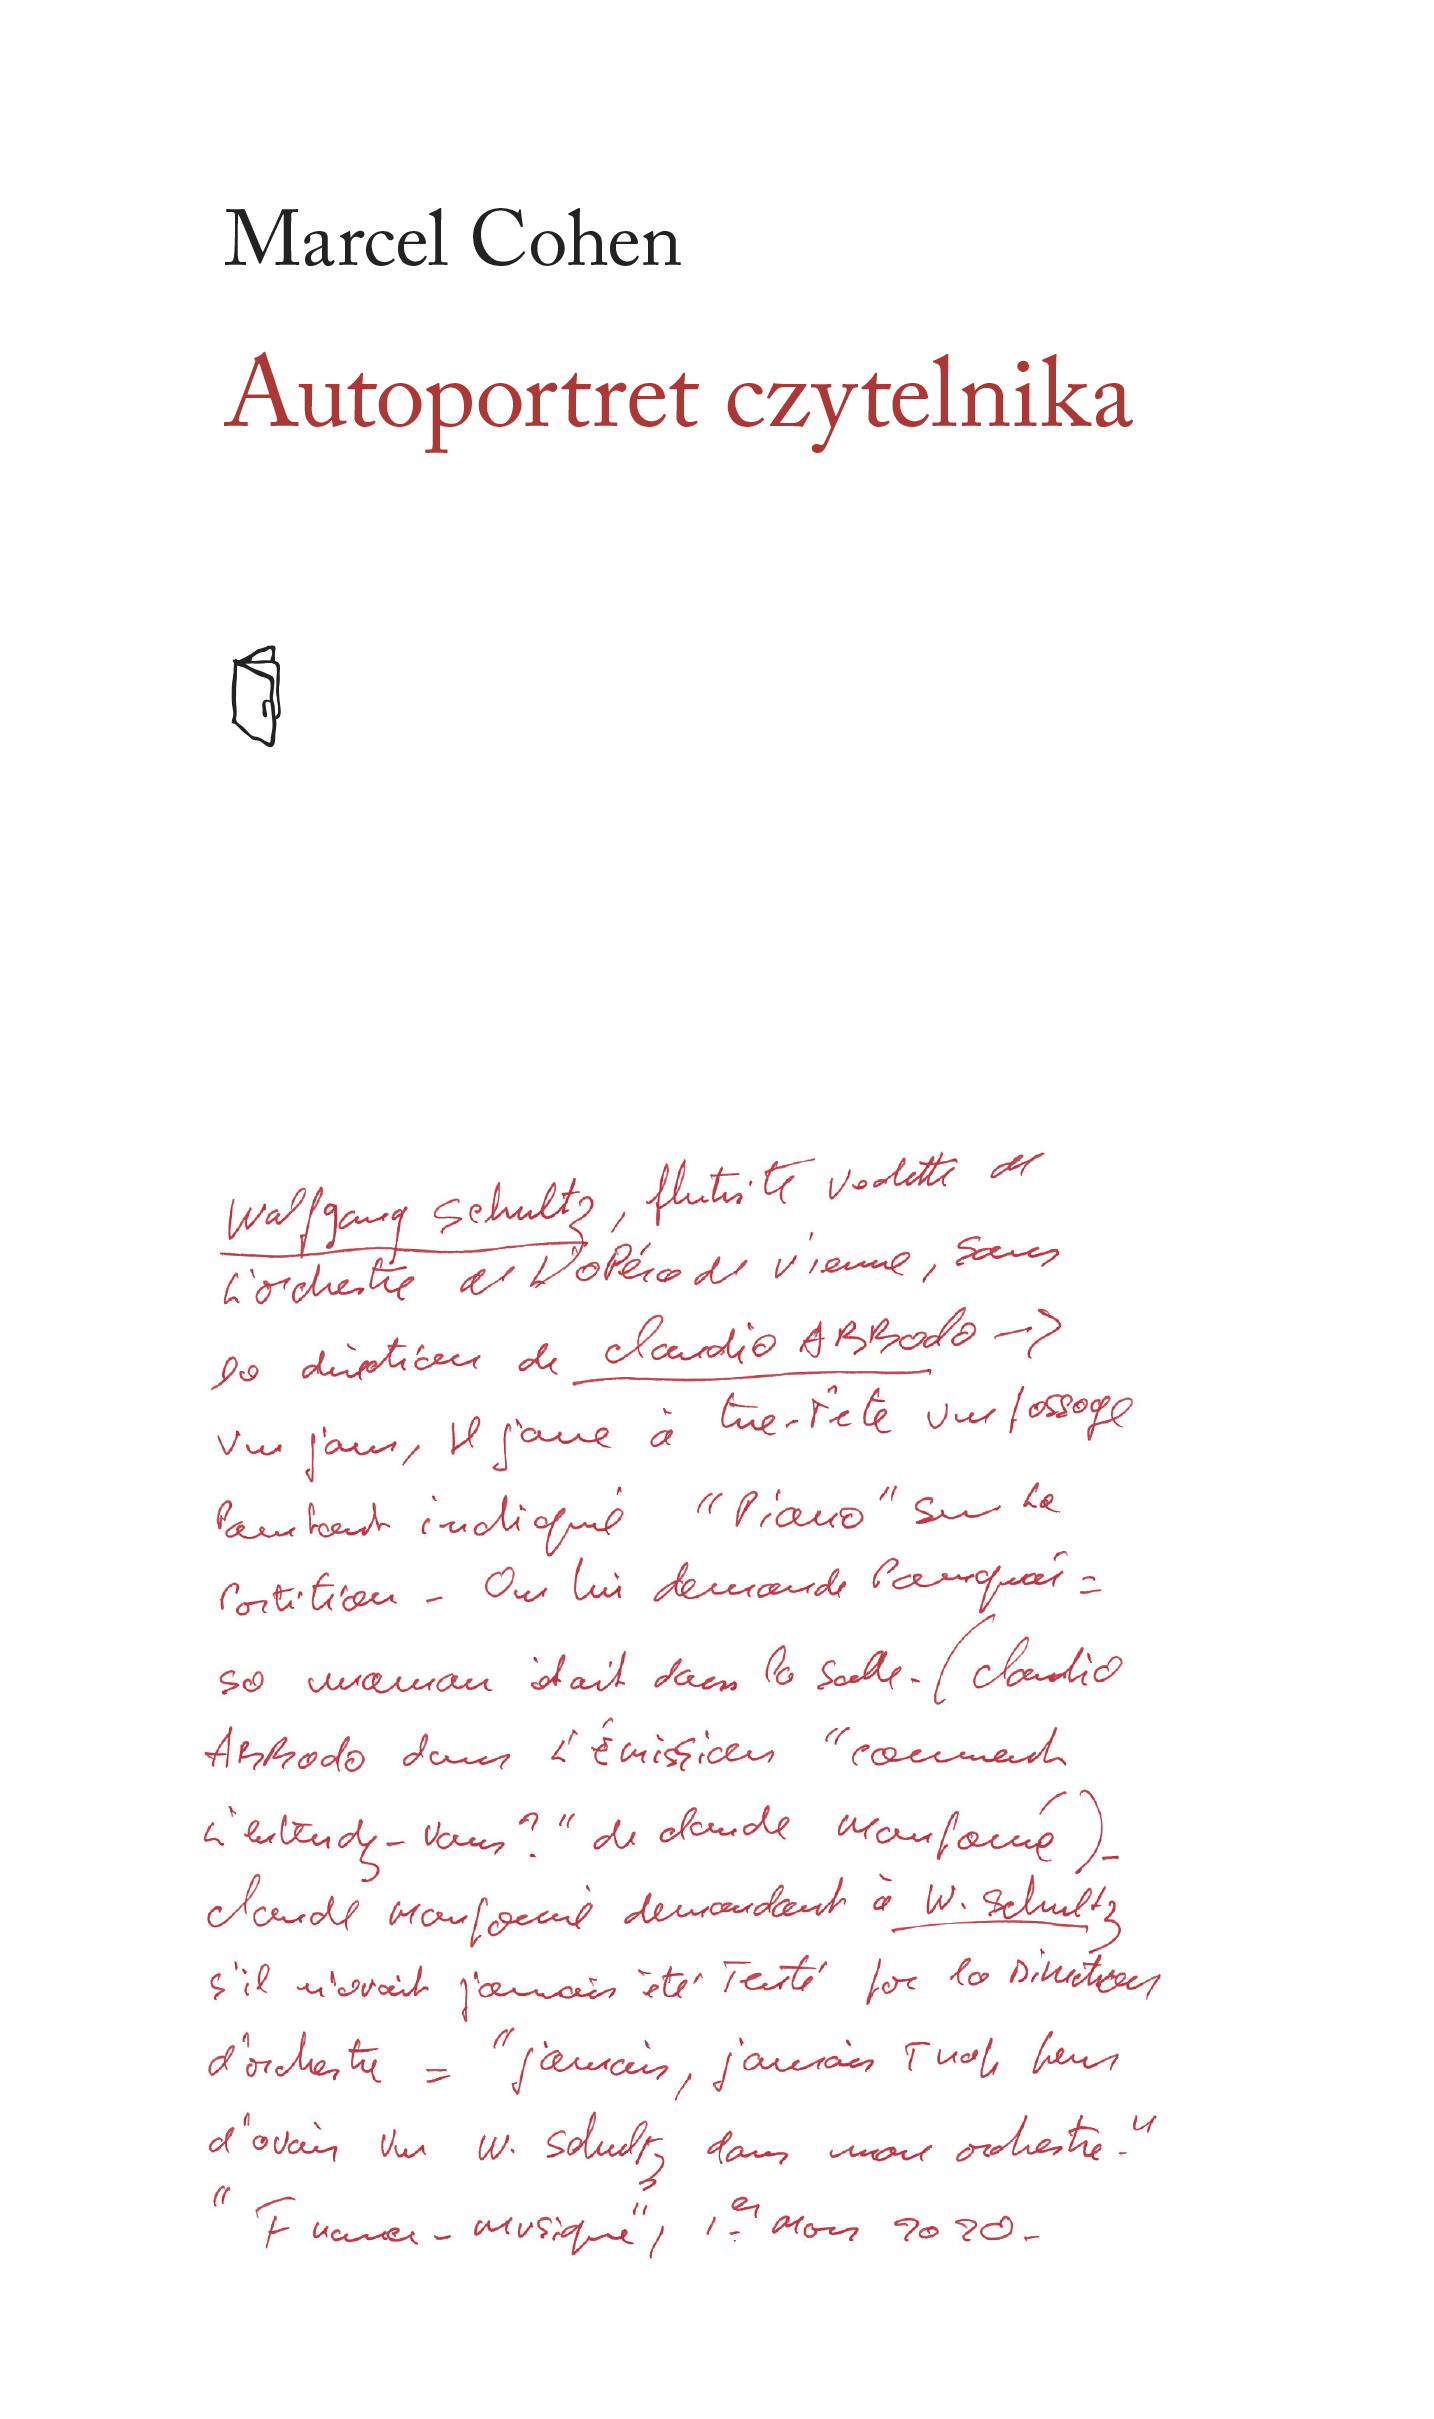 Marcel Cohen
Autoportret czytelnika
Wolfgang Schultz, flutiste vedette de
L'orchestre de L'opéra de Vienne, sous
la direction de Claudio ABBado →
Un jour, il joue à tue-tête un passage
Pourtant indiqué "Piano" sur la
Partition - On lui demande Pourquoi =
sa maman était dans la salle - (Claudio
ABBado dans L'Émission "comment
L'entendez-vous ?" de claude Maupomé) -
claude Maupomé demandant à W. Schultz
s'il n'avait jamais été Tenté par la Direction
d'orchestre = "jamais, jamais Trop peur
d'avoir un W. Schultz dans mon orchestre."
"France-Musique", 1er Mars 2020 -